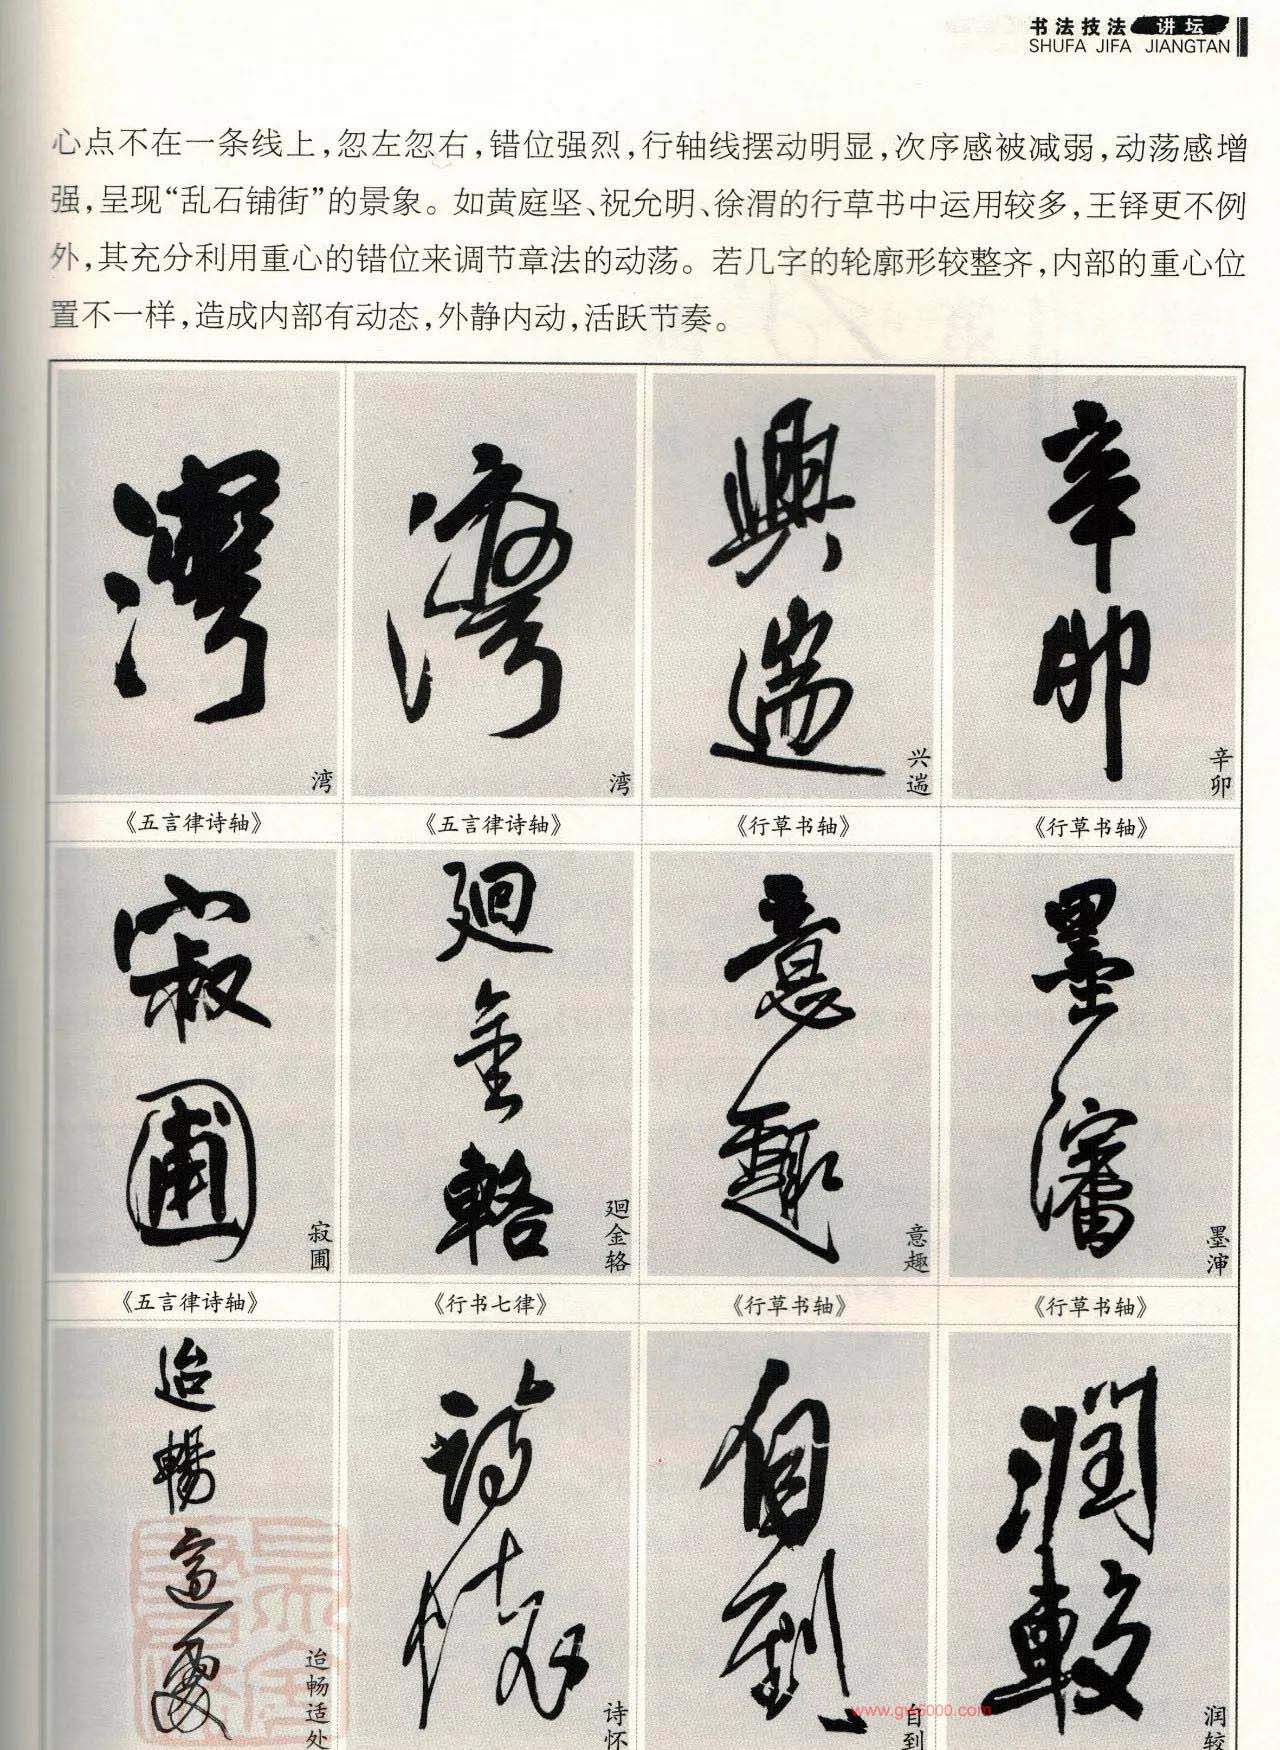 书法技法 讲坛
SHUFA JIFA JIANGTAN
心点不在一条线上，忽左忽右，错位强烈，行轴线摆动明显，次序感被减弱，动荡感增
强，呈现“乱石铺街”的景象。如黄庭坚、祝允明、徐渭的行草书中运用较多，王铎更不例
外，其充分利用重心的错位来调节章法的动荡。若几字的轮廓形较整齐，内部的重心位
置不一样，造成内部有动态，外静内动，活跃节奏。
灣
湾
灣
湾
興遄
兴遄
辛卯
辛卯
《五言律诗轴》
《五言律诗轴》
《行草书轴》
《行草书轴》
寂圃
寂圃
廻金輅
廻金辂
意趣
意趣
墨瀋
墨渖
《五言律诗轴》
《行书七律》
《行草书轴》
《行草书轴》
迨暢適處
迨畅适处
詩懷
诗怀
自到
自到
潤較
润较
www.gw5000.com